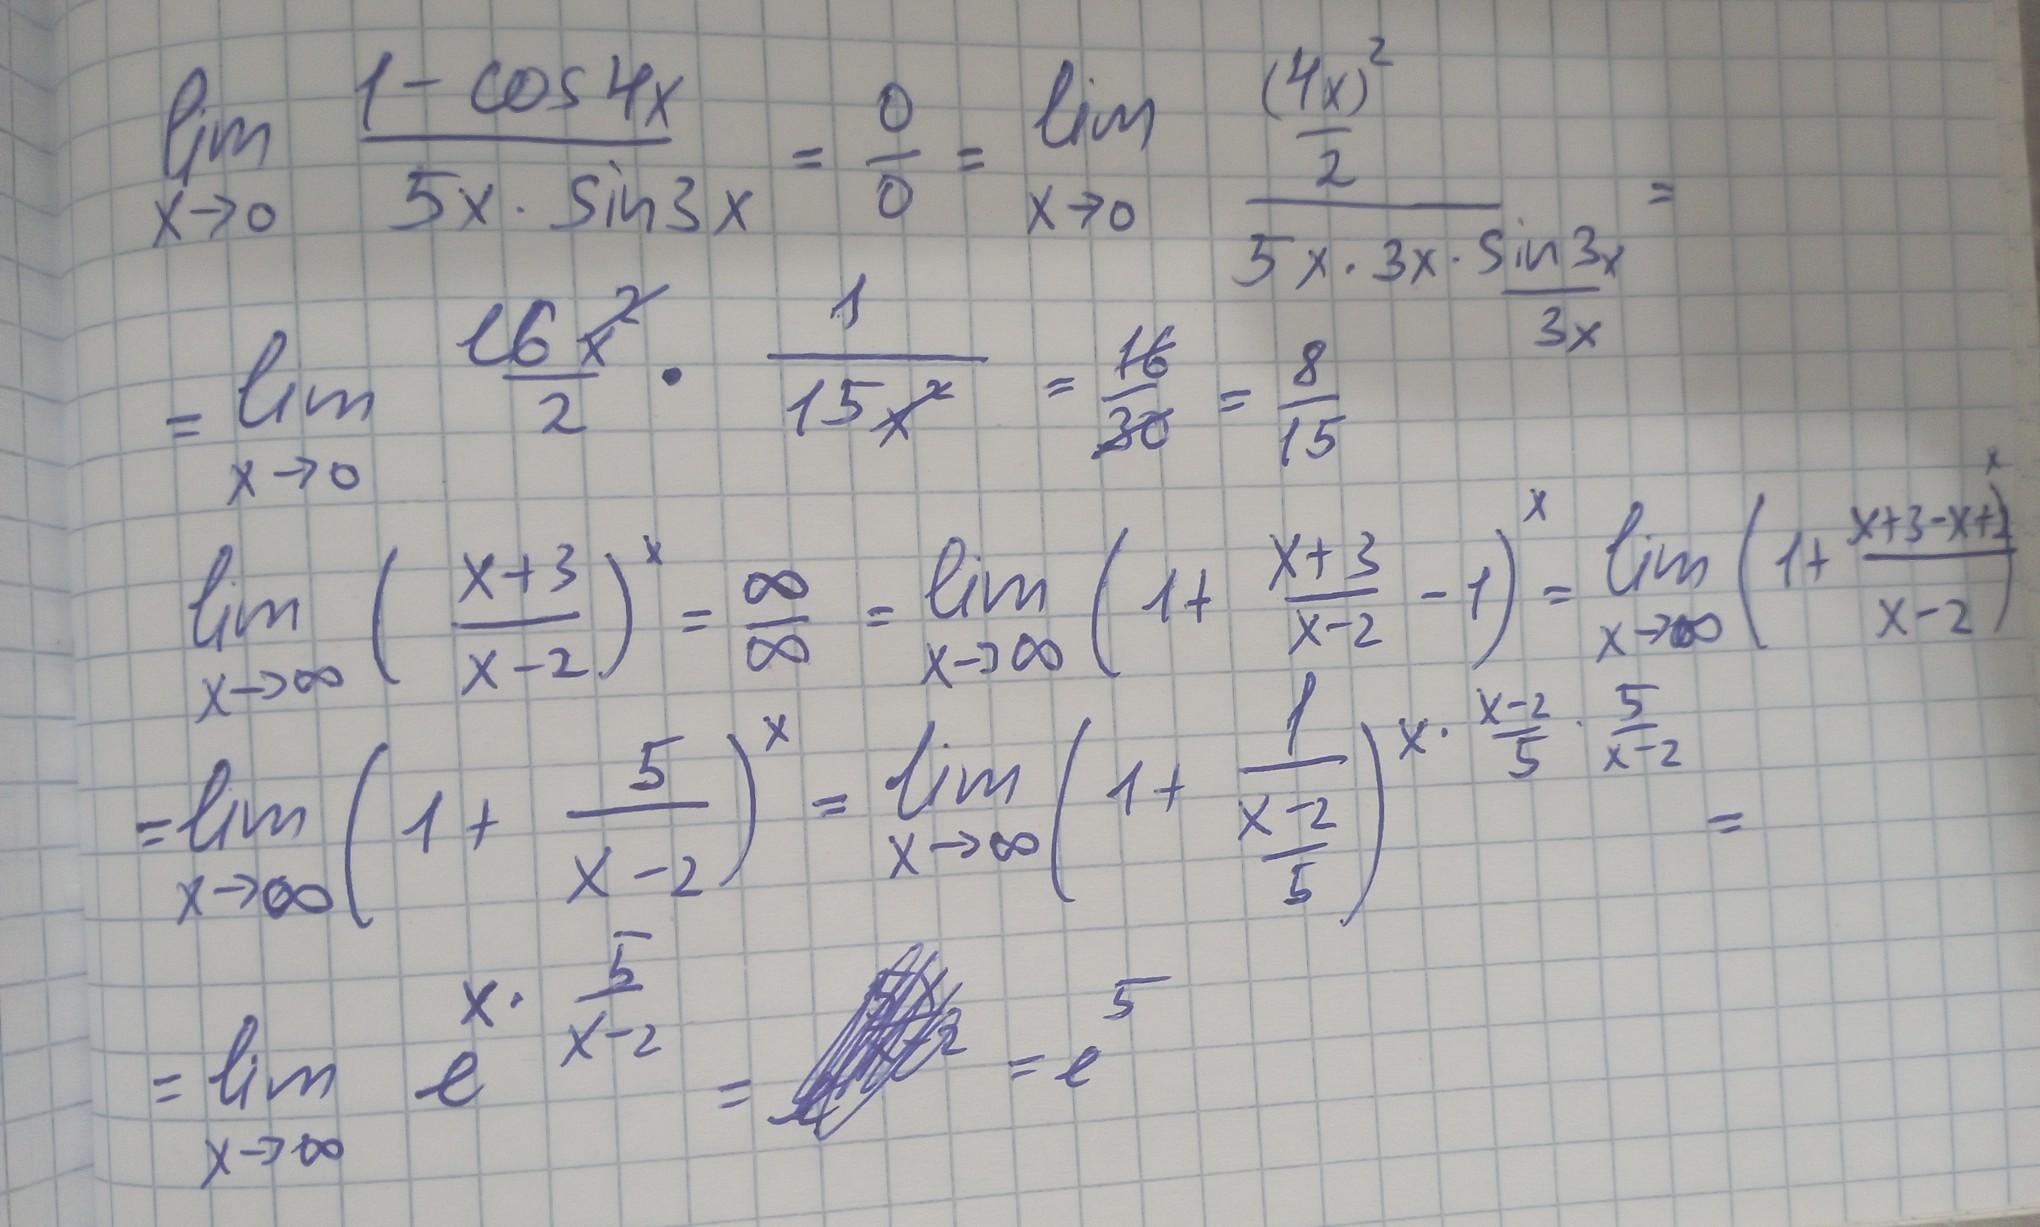 lim x→0 (1 - cos 4x)/(5x · sin 3x) = 0/0 = lim x→0 ((4x)²/2)/(5x · 3x · (sin 3x)/(3x)) =
= lim x→0 (16x²)/2 · 1/(15x²) = 16/30 = 8/15
lim x→∞ ((x+3)/(x-2))^x = ∞/∞ = lim x→∞ (1 + (x+3)/(x-2) - 1)^x = lim x→∞ (1 + (x+3-x+2)/(x-2))^x
= lim x→∞ (1 + 5/(x-2))^x = lim x→∞ (1 + 1/((x-2)/5))^(x · (x-2)/5 · 5/(x-2)) =
= lim x→∞ e^(x · 5/(x-2)) = = e^5